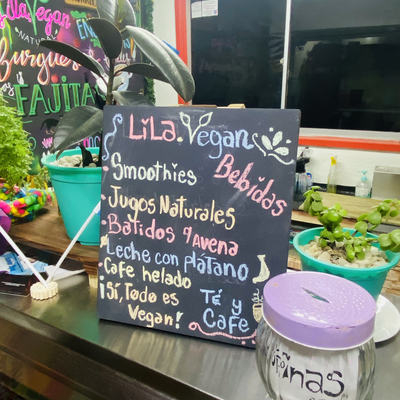 LiLa.Vegan
Bebidas
Smoothies
Jugos Naturales
Batidos y Avena
Leche con plátano
Cafe helado
¡Sí, Todo es
Vegan!
Té y
Cafe
LilaVegan
Burgues
FAJITA
inas